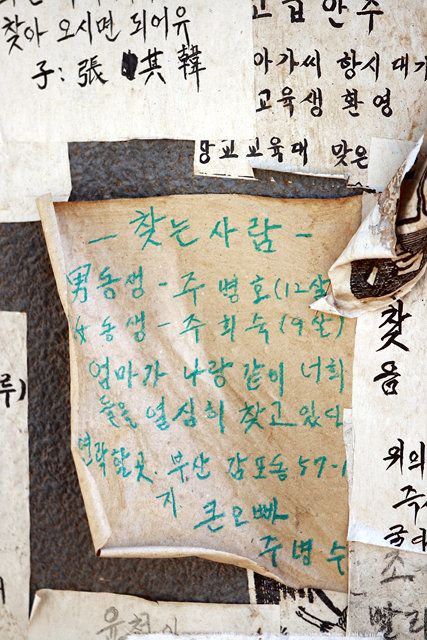 찾아 오시면 되어유
子: 張 其 韓
고급안주
아가씨 항시 대기
교육생 환영
맞은
- 찾는사람 -
男동생 - 주병호 (12살)
女동생 - 주희숙 (9살)
엄마가 나랑 같이 너희
들을 열심히 찾고있다
연락할곳. 부산 감포동 57-1
지
큰오빠
주병수
루)
찾
음
위의
주
국
소
빨리